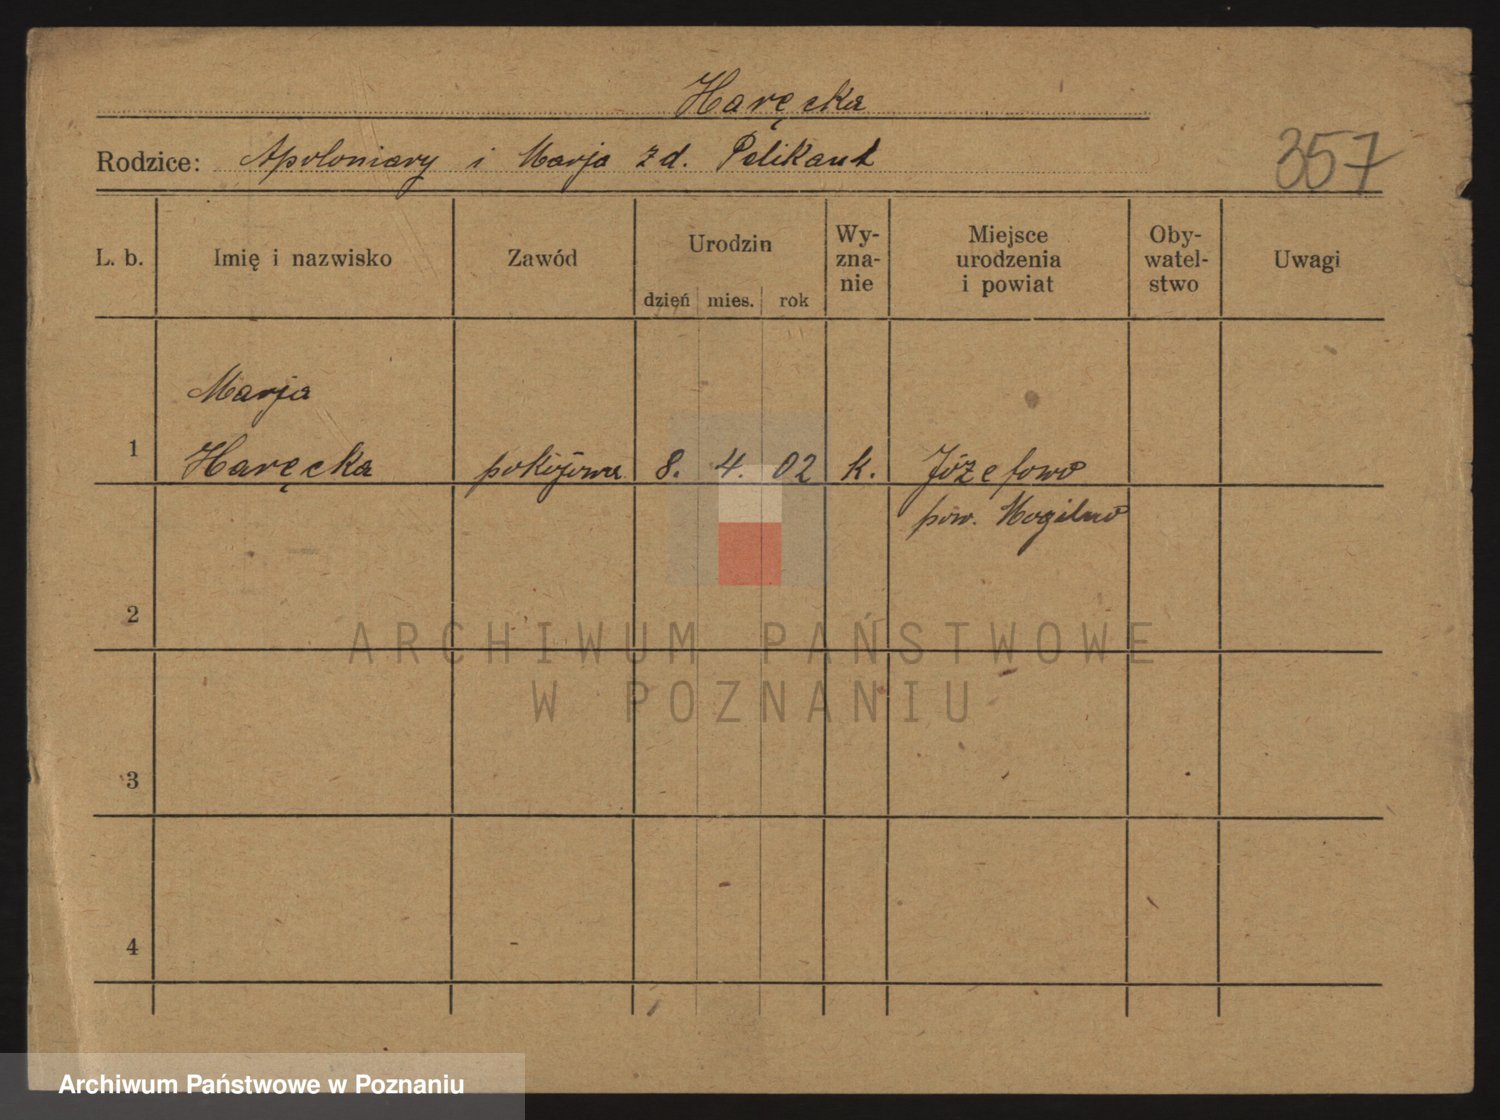 Haręcka
Rodzice: Apoloniary i Marja z d. Pelikant
357
L. b.
Imię i nazwisko
Zawód
Urodzin
dzień mies. rok
Wy-
zna-
nie
Miejsce
urodzenia
i powiat
Oby-
watel-
stwo
Uwagi
Marja
1 Haręcka pokojowa 8. 4. 02 k. Józefowo
pow. Mogilno
2
ARCHIWUM PAŃSTWOWE
W POZNANIU
3
4
Archiwum Państwowe w Poznaniu